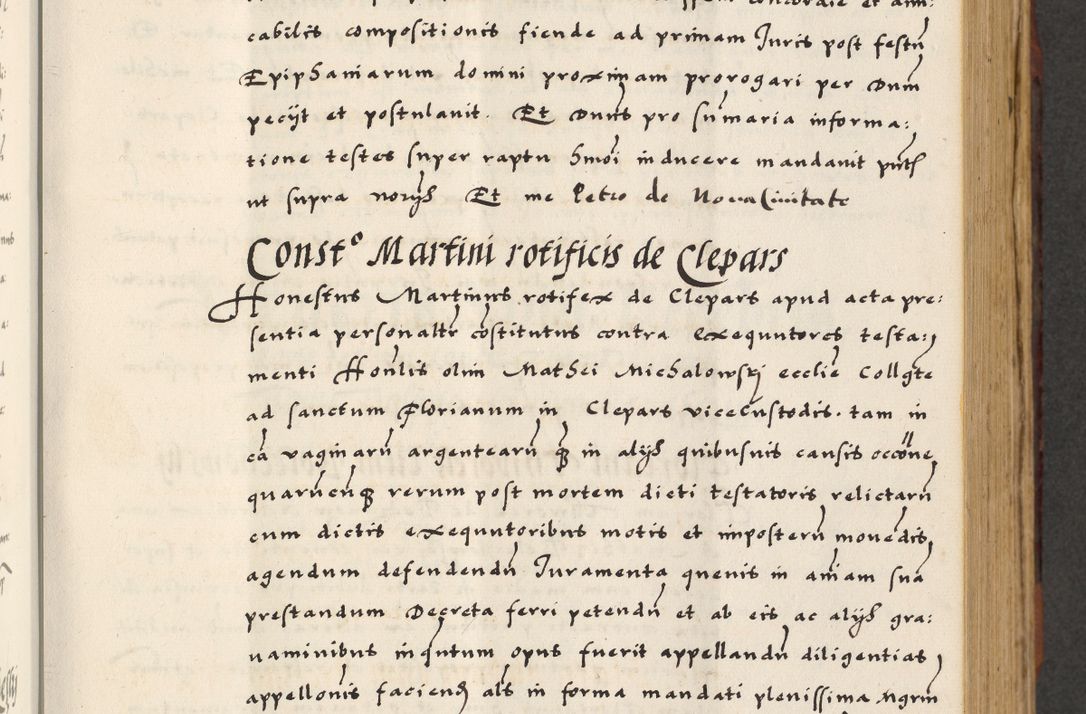 concordie et ami
cabilis compositionis fiende ad primam Juris post festū
Epiphaniarum domini proximam prorogari per Dnm̄
peciit et postulavit. Et Dn̄us pro sum̄aria informa:
tione testes super raptu hmōi inducere mandavit pn̄tib
ut supra notijs Et me Petro de Nova Civitate
Constᵒ Martini rotificis de Clepars
Honestus Martinus rotifex de Clepars apud acta pre:
sentia personaltr̄ cōstitutus contra Exequutores testa:
menti Hon̄lis olim Mathei Michalowskj ecclīe Collgte
ad sanctum Florianum in Clepars vicecustodis. tam in
cā vaginarū argentearū q̄ȝ in alijs quibusuis causis occōne
quarūcūqȝ rerum post mortem dicti testatoris relictarū
cum dictis exequutoribus motis et imposterū movēdis
agendum defendendū Juramenta quevis in an̄iam suā
prestandum Decreta ferri petendū et ab eis ac alijs gra:
vaminibus inqntum opus fuerit appellandū diligentias
appellonīs faciend als̄ in forma mandati plenissima Ngrm̄